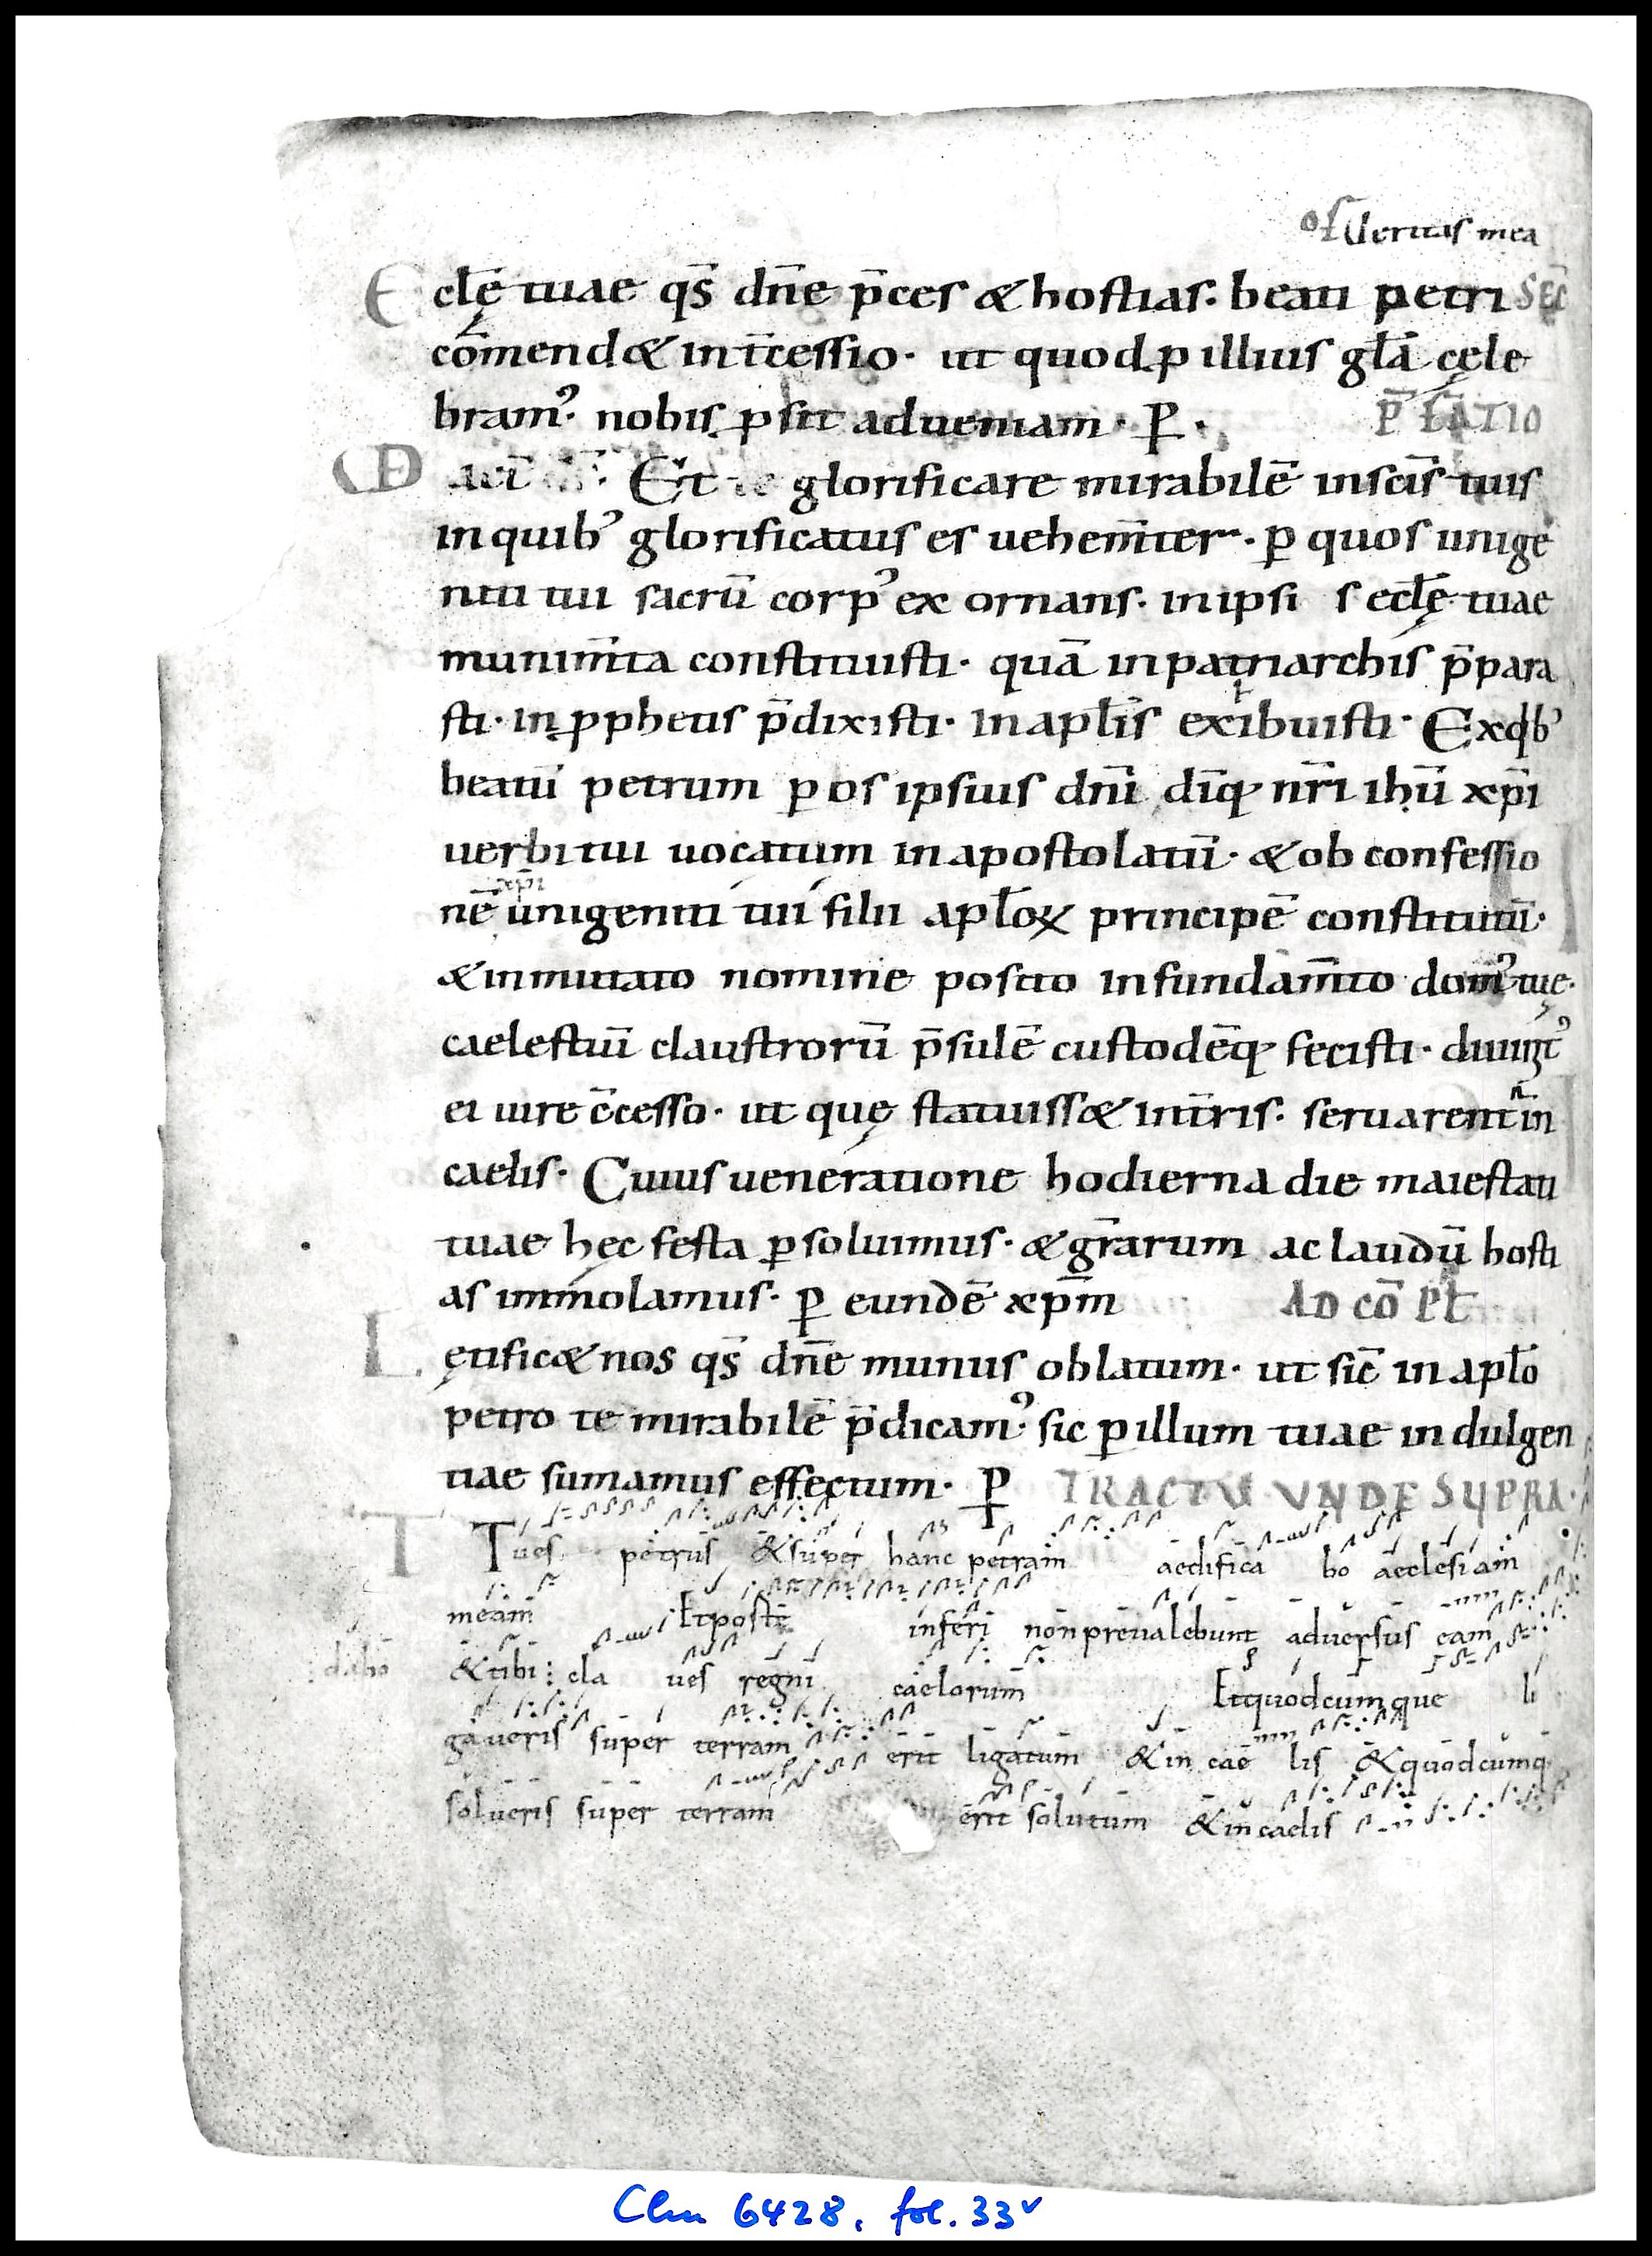 of Ueritas mea
Eclę̄ tuae qs̄ dn̄e p̄ces & hostias· beati petri SEC̄
cōmend& int̄cessio· ut quod ꝑ illius gl̄a cęle
bramꝰ· nobis ꝓsit ad ueniam· ꝑ· P̄FATIO
UD aet̄ Et te glorificare mirabilē in sc̄is tuis
in quibꝰ glorificatus es uehem̄ter· ꝑ quos unige
niti tui sacrū corpꝰ exornans· in ipsi s eclę̄ tuae
munim̄ta constituisti· quā in patriarchis p̄para
sti· in ꝓphetis p̄dixisti· in apl̄is exibuisti· Ex qbꝰ
beatū petrum ꝑ os ipsius dn̄i dīq; nr̄i ihū xp̄i
uerbi tui uocatum in apostolatū· & ob confessio
nē xp̄i unigeniti tui filii apl̄oꝝ principē constitutū·
& in mutato nomine posito in fundam̄to domꝰ tuę·
caelestiū claustrorū p̄sulē custodēq; fecisti· diuinit̄ꝰ
ei iure c̄cesso· ut quę statuiss& in t̄ris· seruarent̄ in
caelis· Cuius ueneratione hodierna die maiestati
tuae hęc festa ꝑsoluimus· & gr̄arum ac laudū hosti
as immolamus· ꝑ eundē xp̄m AD CŌ PL̄
Lętific& nos qs̄ dn̄e munus oblatum· ut sic̄ in apl̄o
petro te mirabilē p̄dicamꝰ· sic ꝑ illum tuae indulgen
tiae sumamus effectum· ꝑ TRACTU UNDE SUPRA·
T Tu es petrus & super hanc petram aedifica bo aecclesiam
meam Et porte inferi non preualebunt aduersus eam
dabo & tibi : cla ues regni caelorum Et quodcumque li
gaueris super terram erit ligatum & in cae lis & quodcumq;
solueris super terram erit solutum & in caelis
Clm 6428, fol. 33v